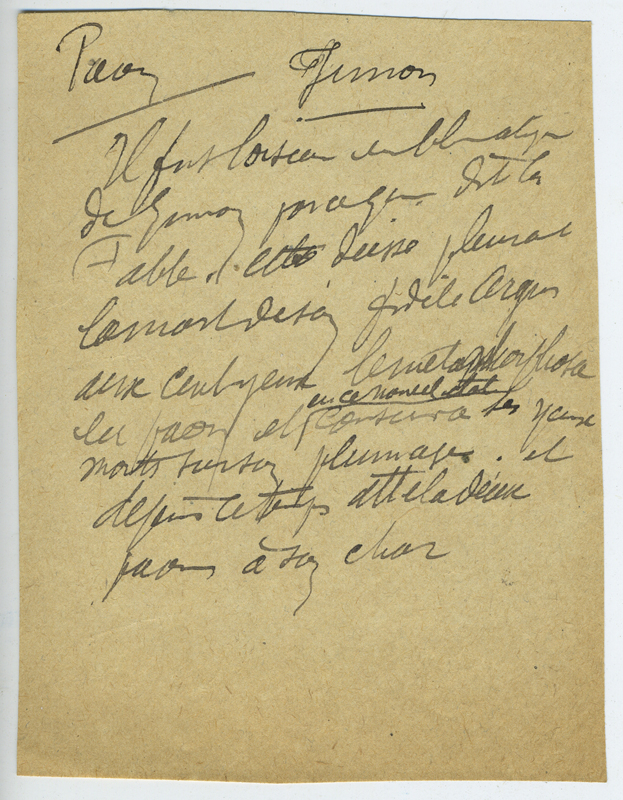 Paon Junon
Il fut l'oiseau emblématique
de Junon parce que dit la
Fable. cette déesse pleurant
la mort de son fidèle Argus
aux cent yeux le métamorphosa
en paon et en ce nouvel état conserva ses yeux
morts sur son plumage. et
depuis ce temps attela deux
paons à son char